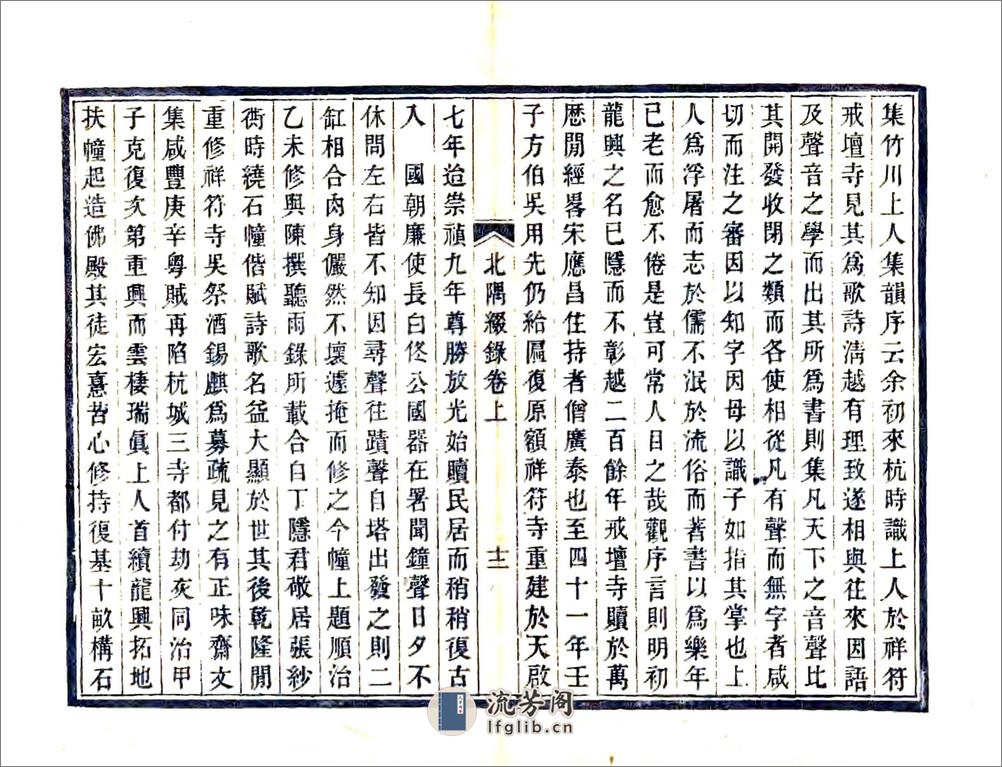 集竹川上人集韻序云余初來杭時識上人於祥符
戒壇寺見其爲歌詩清越有理致遂相與往來因語
及聲音之學而出其所爲書則集凡天下之音聲比
其開發收閉之類而各使相從凡有聲而無字者咸
切而注之審因以知字因母以識子如指其掌也上
人爲浮屠而志於儒不泯於流俗而著書以爲樂年
已老而愈不倦是豈可常人目之哉觀序言則明初
龍興之名已隱而不彰越二百餘年戒壇寺贖於萬
歷閒經畧宋應昌住持者僧廣泰也至四十一年壬
子方伯吳用先仍給匾復原額祥符寺重建於天啟
北隅綴錄卷上 十二
七年迨崇禎九年尊勝放光始贖民居而稍稍復古
入 國朝廉使長白佟公國器在署聞鐘聲日夕不
休問左右皆不知因尋聲往蹟聲自塔出發之則二
缸相合肉身儼然不壞遽掩而修之今幢上題順治
乙未修與陳撰聽雨錄所載合白丁隱君敬居張紗
衖時繞石幢偕賦詩歌名益大顯於世其後乾隆閒
重修祥符寺吳祭酒錫麒爲募疏見之有正味齋文
集咸豐庚辛粵賊再陷杭城三寺都付劫灰同治甲
子克復次第重興而雲棲瑞眞上人首續龍興拓地
扶幢起造佛殿其徒宏憙苦心修持復基十畝構石
流芳阁
lfglib.cn